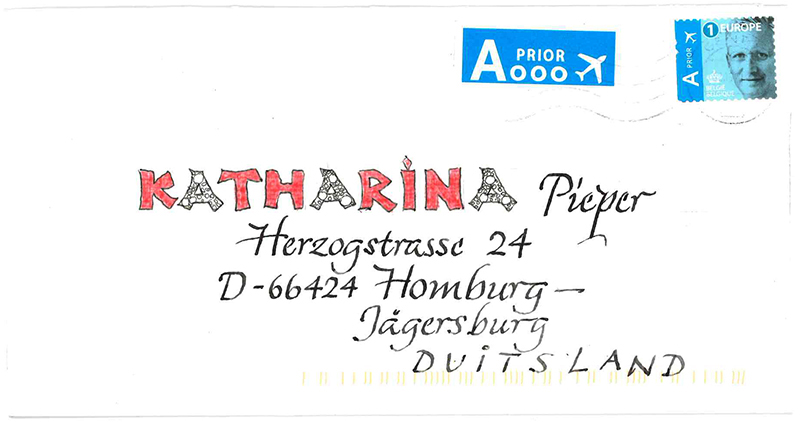 PRIOR
A
1 EUROPE
A PRIOR
BELGIË
BELGIQUE
KATHARINA Pieper
Herzogstrasse 24
D-66424 Homburg-
Jägersburg
DUITSLAND